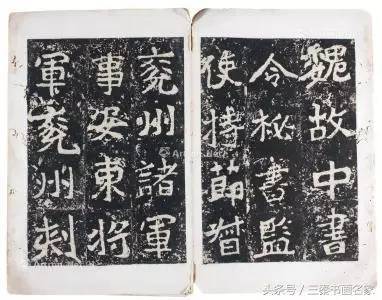 魏故中書
令秘書監
使持節督
兗州諸軍
事安東將
軍兗州刺
头条号 / 三秦书画名家